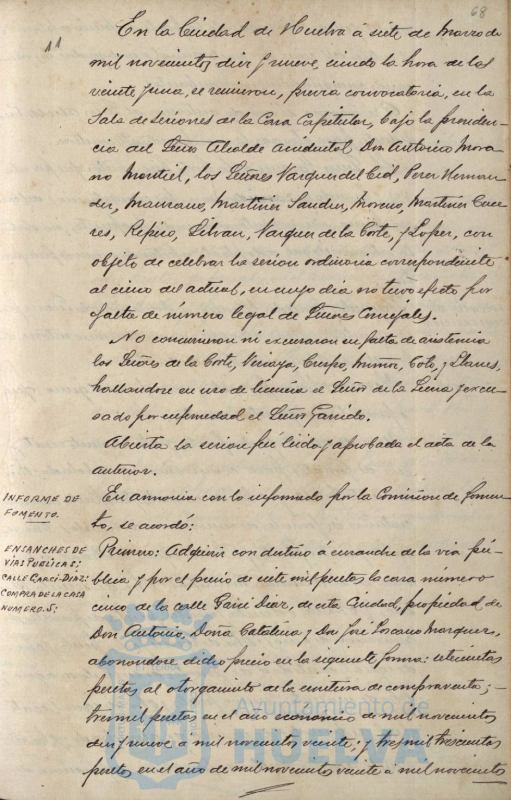 68
11
En la Ciudad de Huelva á siete de Marzo de
mil novecientos diez y nueve, siendo la hora de las
veinte y una, se reunieron, previa convocatoria, en la
Sala de Sesiones de la Casa Capitular, bajo la presiden-
cia del Señor Alcalde accidental Don Antonio Mora-
no Montiel, los Señores Vazquez del Cid, Perez Hernan-
dez, Manzano, Martinez Sanchez, Moreno, Martinez Cace-
res, Repiso, Silvan, Vazquez de la Corte, y Lopez, con
objeto de celebrar la sesion ordinaria correspondiente
al cinco del actual, en cuyo dia no tuvo efecto por
falta de número legal de Señores Concejales.
No concurrieron ni excusaron su falta de asistencia
los Señores de la Corte, Vizcaya, Crespo, Muñoz, Coto, y Llanes,
hallandose en uso de licencia el Señor de la y excu-
sado por enfermedad el Señor Garrido.
Abierta la sesion fué leida y aprobada el acta de la
anterior.
INFORME DE
FOMENTO.
En armonia con lo informado por la Comision de Fomen-
to, se acordó:
ENSANCHES DE
VIAS PUBLICAS:
CALLE GARCI-DIAZ:
COMPRA DE LA CASA
NUMERO 5:
Primero: Adquirir con destino á ensanche de la via pú-
blica y por el precio de siete mil pesetas la casa número
cinco de la calle Garci Diaz, de esta Ciudad, propiedad de
Don Antonio, Doña Catalina, y Don José Lozano Marquez,
abonandose dicho precio en la siguiente forma: setecientas
pesetas al otorgamiento de la escritura de compraventa;
tres mil pesetas en el año económico de mil novecientos
diez y nueve á mil novecientos veinte; y tres mil trescientas
pesetas en el año de mil novecientos veinte á mil novecientos
Ayuntamiento de
HUELVA